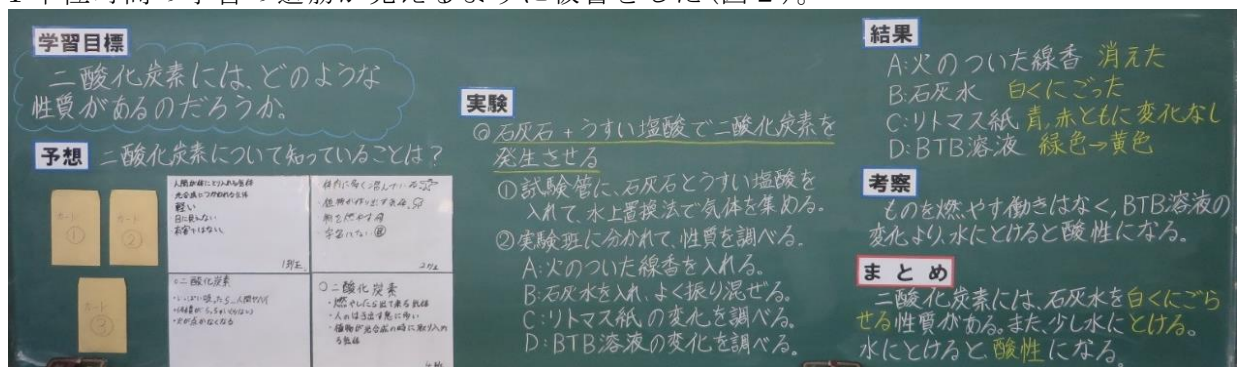 学習目標
二酸化炭素には、どのような
性質があるのだろうか。
予想 二酸化炭素について知っていることは?
カード
①
カード
②
カード
③
人間が体にとり入れる気体
光合成につかわれる気体
軽い
目に見えない
有害ではない。
1班
2班
○二酸化炭素
・火が点かなくなる
○二酸化炭素
・燃やしたら出て来る気体
・人のはき出す息に多い
・植物が光合成の時に取り入れ
る気体
実験
◎石灰石+うすい塩酸で二酸化炭素を
発生させる
①試験管に、石灰石とうすい塩酸を
入れて、水上置換法で気体を集める。
②実験班に分かれて、性質を調べる。
A:火のついた線香を入れる。
B:石灰水を入れ、よく振り混ぜる。
C:リトマス紙の変化を調べる。
D:BTB溶液の変化を調べる。
結果
A:火のついた線香 消えた
B:石灰水 白くにごった
C:リトマス紙 青,赤ともに変化なし
D:BTB溶液 緑色→黄色
考察
ものを燃やす働きはなく,BTB溶液の
変化より、水にとけると酸性になる。
まとめ
二酸化炭素には、石灰水を白くにごら
せる性質がある。また、少し水にとける。
水にとけると酸性になる。